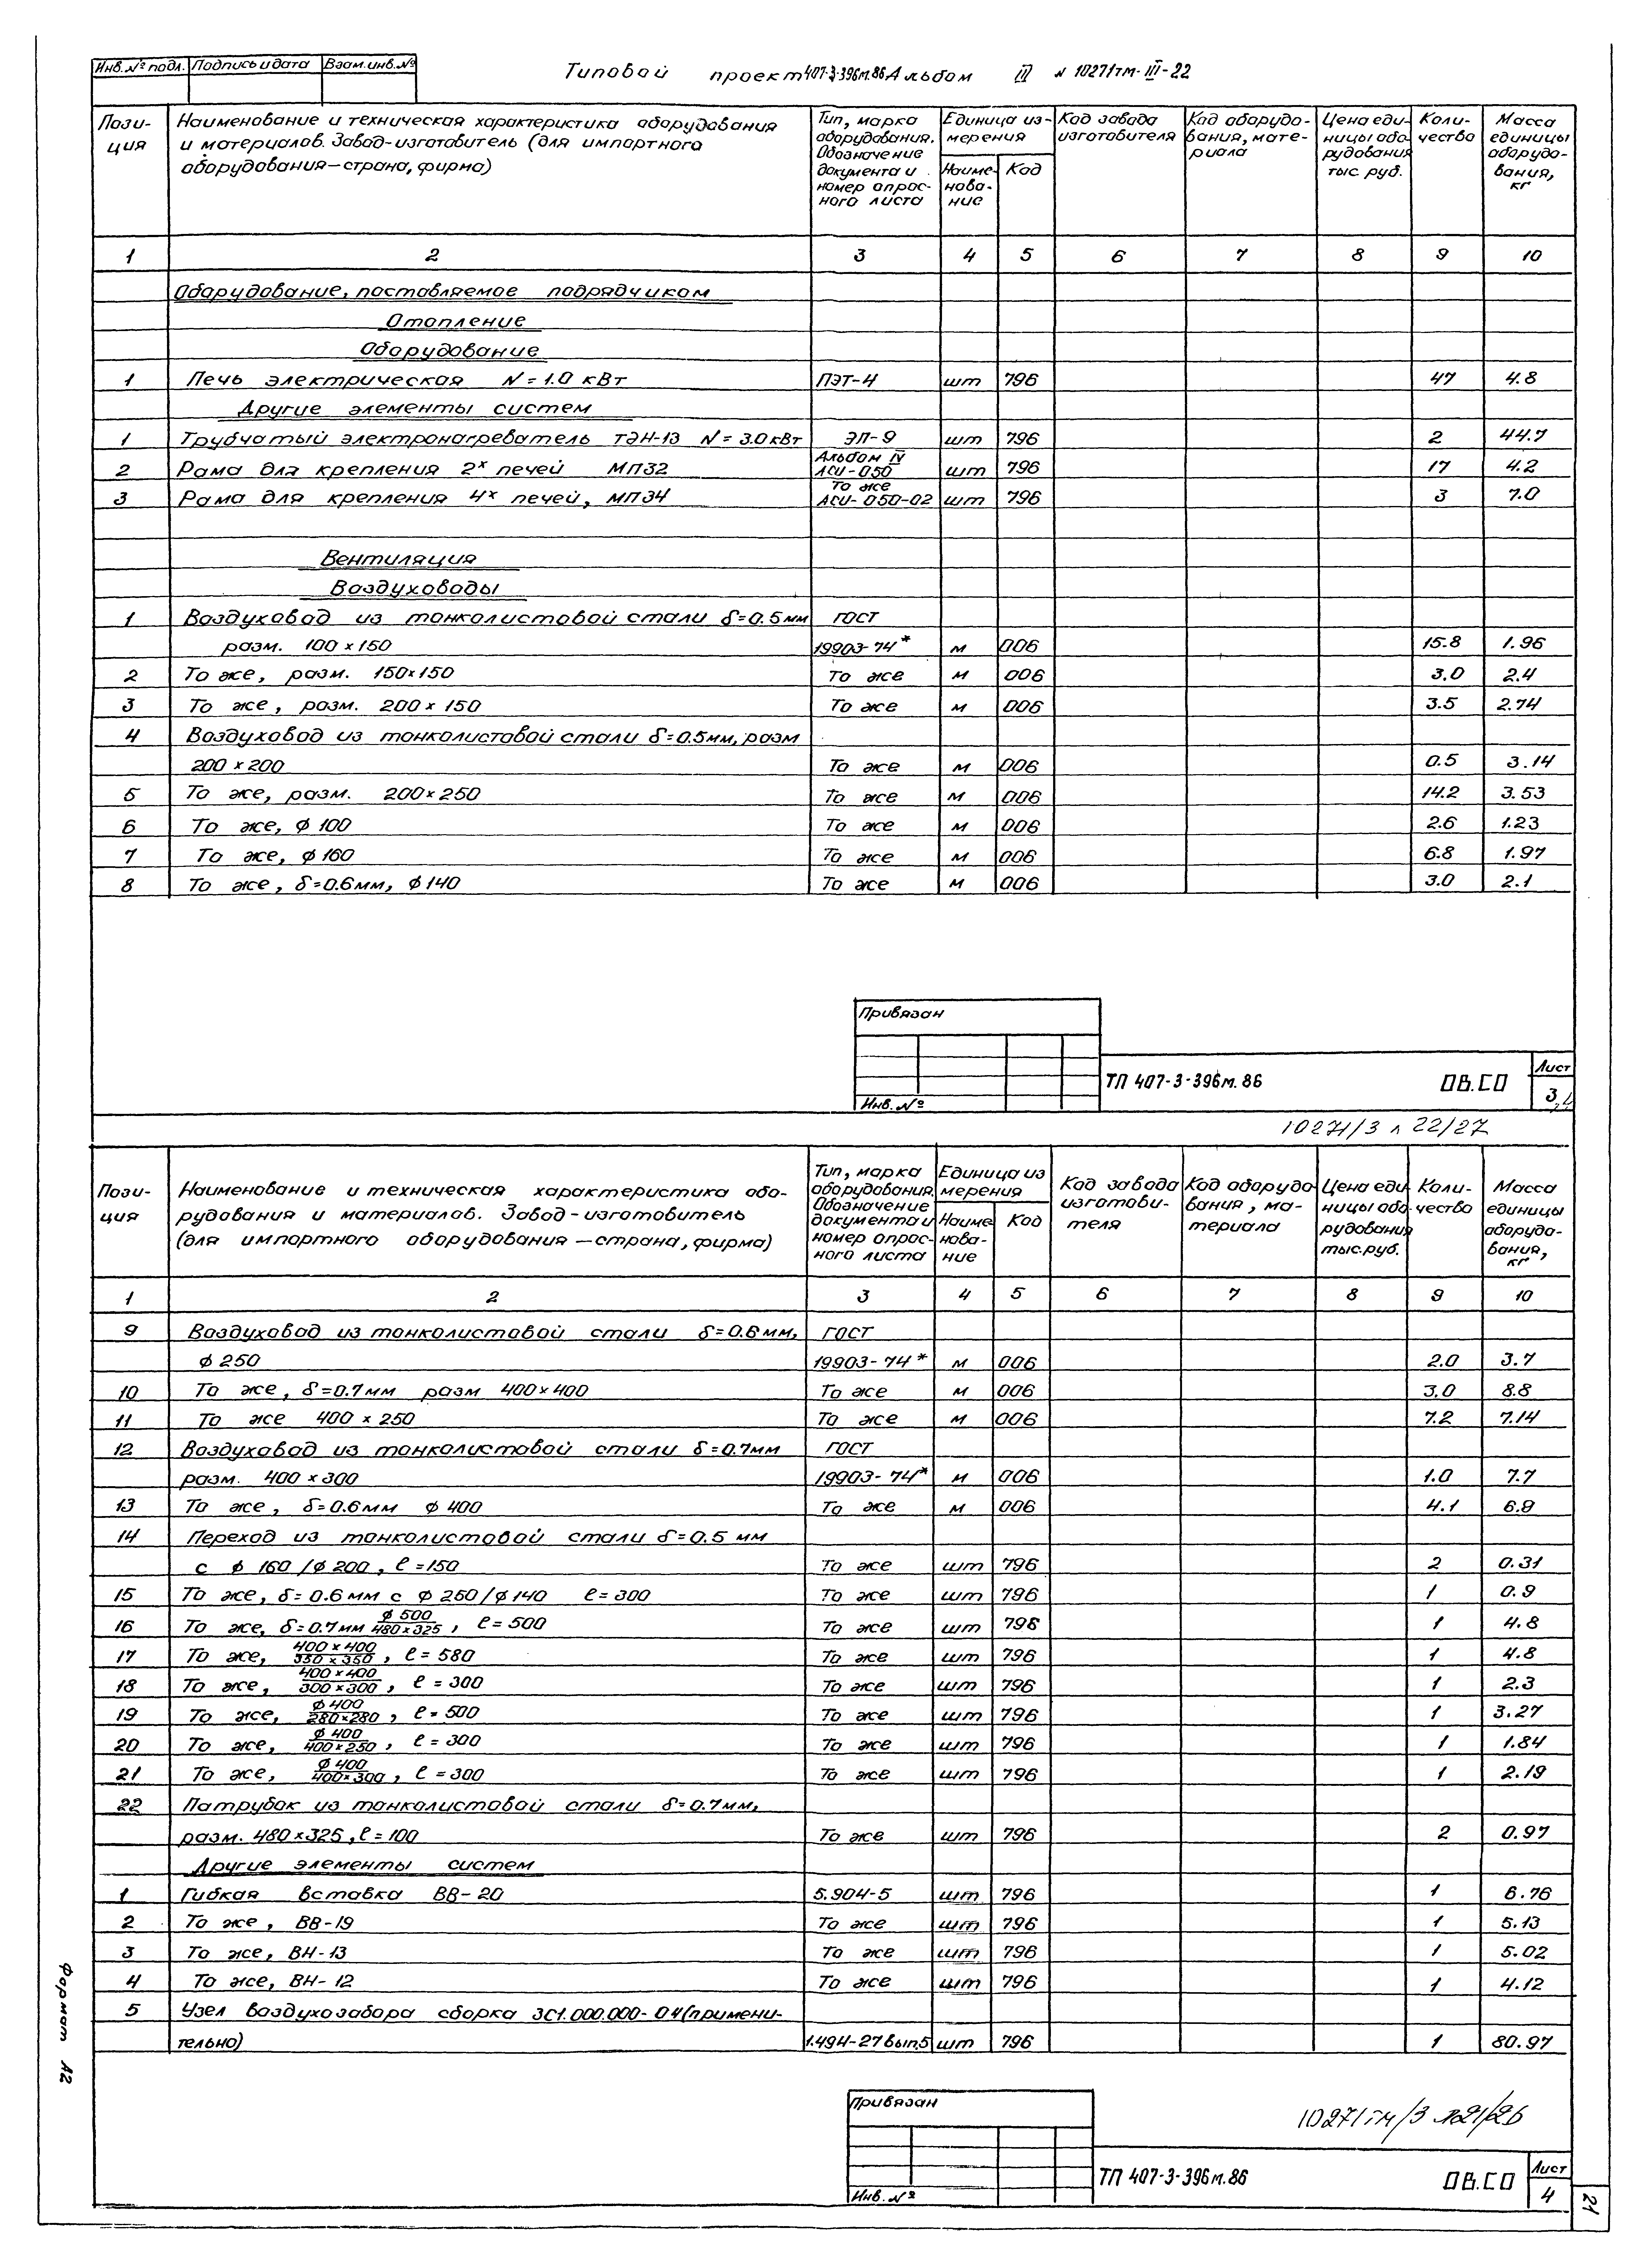 Инв. № подл. Подпись и дата Взам. инв. №
Типовой проект 407-3-396м.86 Альбом III N 10271тм-III-22
Пози-
ция
Наименование и техническая характеристика оборудования
и материалов. Завод-изготовитель (для импортного
оборудования — страна, фирма)
Тип, марка
оборудования.
Обозначение
документа и
номер опрос-
ного листа
Единица из-
мерения
Наиме-
нова-
ние
Код
Код завода
изготовителя
Код оборудо-
вания, мате-
риала
Цена еди-
ницы обо-
рудования
тыс. руб.
Коли-
чество
Масса
единицы
оборудо-
вания,
кг
1 2 3 4 5 6 7 8 9 10
Оборудование, поставляемое подрядчиком
Отопление
Оборудование
1 Печь электрическая N = 1.0 кВт ПЭТ-4 шт 796 47 4.8
Другие элементы систем
1 Трубчатый электронагреватель ТЭН-13 N = 3.0 кВт ЭП-9 шт 796 2 44.7
Альбом IV
2 Рама для крепления 2х печей МП32 АСИ-050 шт 796 17 4.2
То же
3 Рама для крепления 4х печей, МП34 АСИ-050-02 шт 796 3 7.0
Вентиляция
Воздуховоды
1 Воздуховод из тонколистовой стали δ=0.5мм ГОСТ
разм. 100 х 150 19903-74* м 006 15.8 1.96
2 То же, разм. 150х150 То же м 006 3.0 2.4
3 То же, разм. 200 х 150 То же м 006 3.5 2.74
4 Воздуховод из тонколистовой стали δ=0.5мм, разм
200 х 200 То же м 006 0.5 3.14
5 То же, разм. 200х250 То же м 006 14.2 3.53
6 То же, ϕ 100 То же м 006 2.6 1.23
7 То же, ϕ 160 То же м 006 6.8 1.97
8 То же, δ=0.6мм, ϕ 140 То же м 006 3.0 2.1
Привязан
Инв. №
ТП 407-3-396м.86 ОВ.СО
Лист
3,4
10271/3 л 22/27
Пози-
ция
Наименование и техническая характеристика обо-
рудования и материалов. Завод-изготовитель
(для импортного оборудования — страна, фирма)
Тип, марка
оборудования.
Обозначение
документа и
номер опрос-
ного листа
Единица из
мерения
Наиме-
нова-
ние
Код
Код завода
изготови-
теля
Код оборудо
вания, ма-
териала
Цена еди
ницы обо-
рудования
тыс.руб.
Коли-
чество
Масса
единицы
оборудо-
вания,
кг
1 2 3 4 5 6 7 8 9 10
9 Воздуховод из тонколистовой стали δ=0.6мм, ГОСТ
ϕ 250 19903-74* м 006 2.0 3.7
10 То же, δ=0.7мм разм 400х400 То же м 006 3.0 8.8
11 То же 400 х 250 То же м 006 7.2 7.14
12 Воздуховод из тонколистовой стали δ=0.7мм ГОСТ
разм. 400 х 300 19903-74* м 006 1.0 7.7
13 То же, δ=0.6мм ϕ 400 То же м 006 4.1 6.9
14 Переход из тонколистовой стали δ=0.5 мм
с ϕ 160/ϕ 200, ℓ=150 То же шт 796 2 0.31
15 То же, δ=0.6мм с ϕ 250/ϕ 140 ℓ=300 То же шт 796 1 0.9
16 То же, δ=0.7мм ϕ 500/480х325, ℓ=500 То же шт 796 1 4.8
17 То же, 400х400/350х350, ℓ=580 То же шт 796 1 4.8
18 То же, 400х400/300х300, ℓ=300 То же шт 796 1 2.3
19 То же, ϕ 400/280х280, ℓ=500 То же шт 796 1 3.27
20 То же, ϕ 400/400х250, ℓ=300 То же шт 796 1 1.84
21 То же, ϕ 400/400х300, ℓ=300 То же шт 796 1 2.19
22 Патрубок из тонколистовой стали δ=0.7мм,
разм. 480х325, ℓ=100 То же шт 796 2 0.97
Другие элементы систем
1 Гибкая вставка ВВ-20 5.904-5 шт 796 1 6.76
2 То же, ВВ-19 То же шт 796 1 5.13
3 То же, ВН-13 То же шт 796 1 5.02
4 То же, ВН-12 То же шт 796 1 4.12
5 Узел воздухозабора сборка 3С1.000.000-04(примени-
тельно) 1.494-27 вып.5 шт 796 1 80.97
Привязан
Инв. №
10271тм/3 л21/26
ТП 407-3-396м.86 ОВ.СО
Лист
4
21
Формат А2